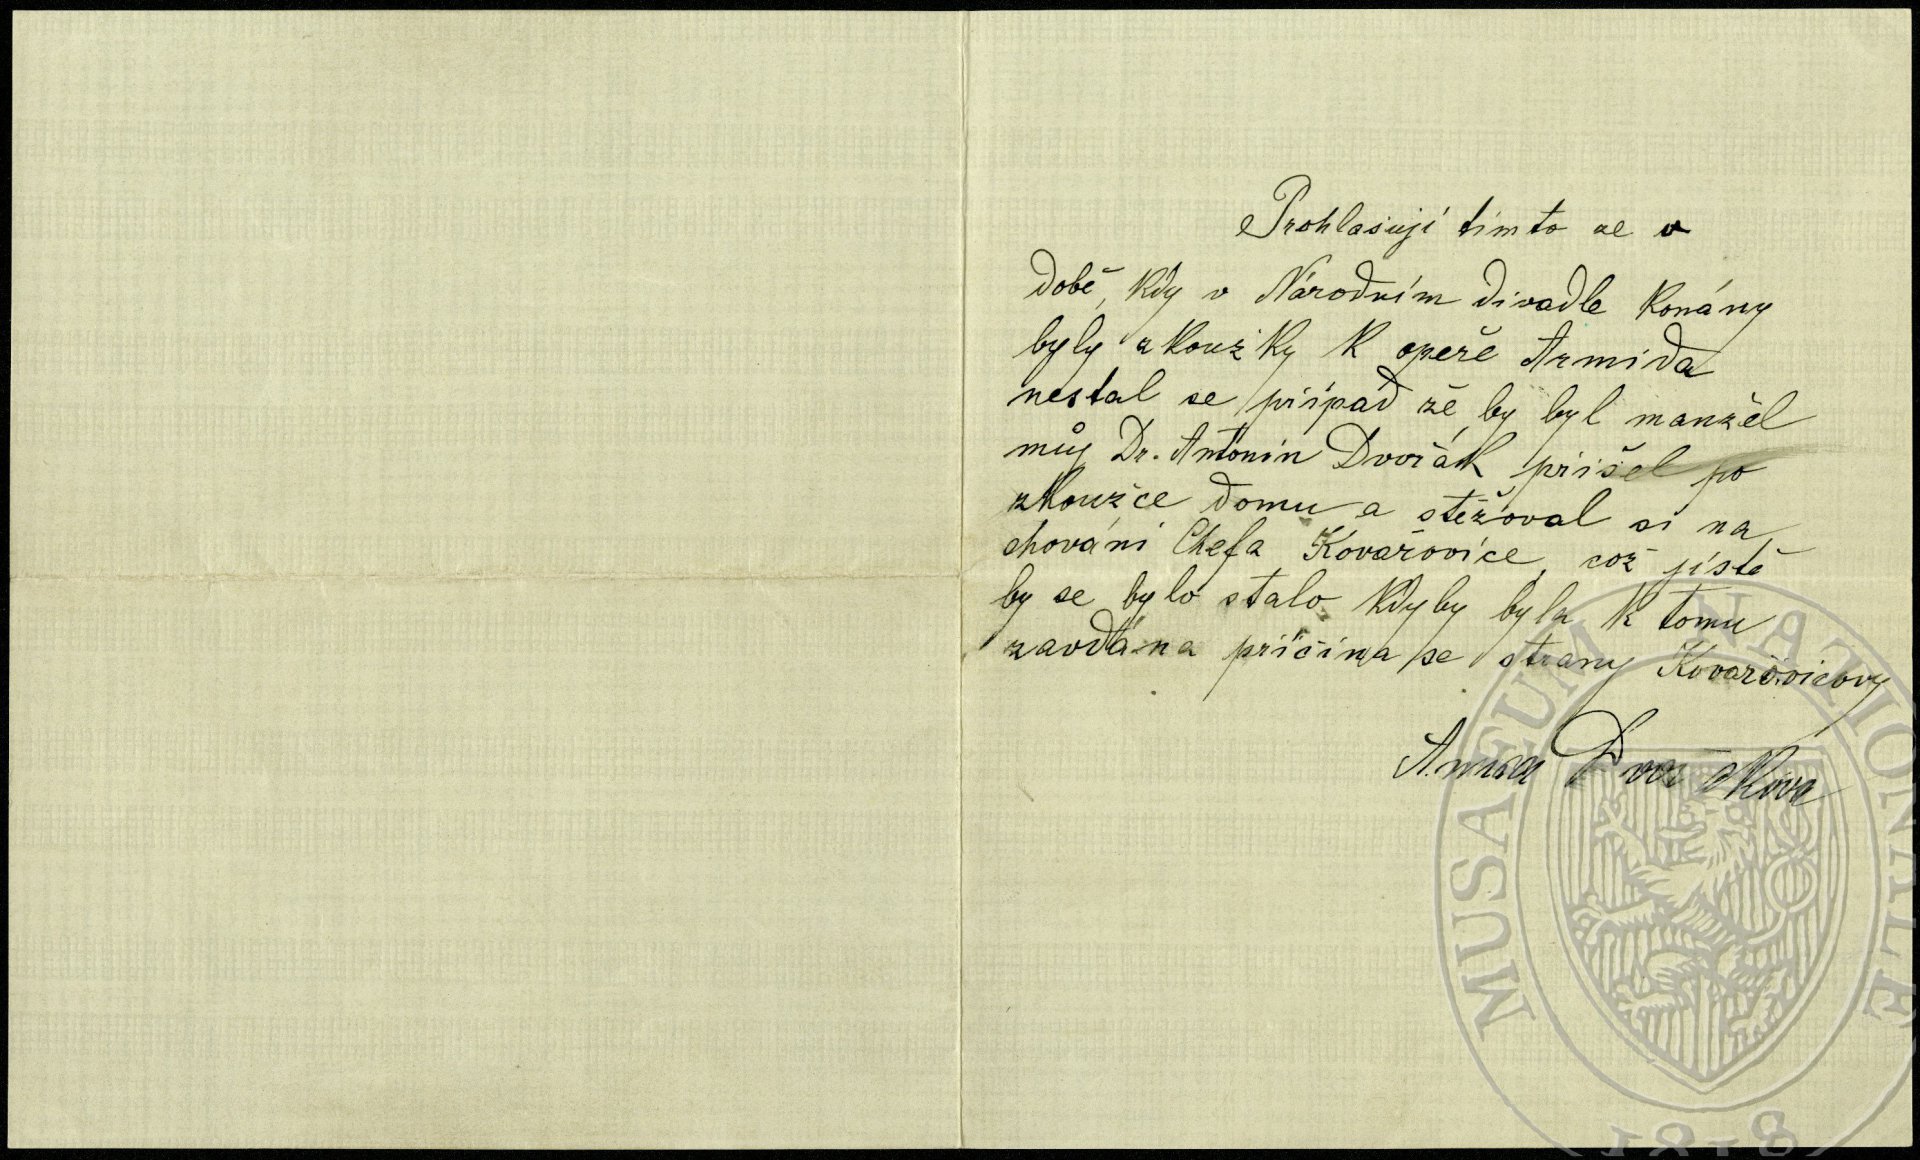 Prohlašuji tímto že v
době, kdy v Národním divadle konány
byly zkoužky k opeře Armida
nestal se případ žě by byl manžel
můj Dr. Antonín Dvořák, přišel po
zkoužce domu a stěžoval si na
chování Chefa Kovařovice, což jistě
by se bylo stalo kdyby byla k tomu
zavdána příčina se strany Kovařovicovy
Anna Dvořáková
MUSAEUM NATIONALE
1818